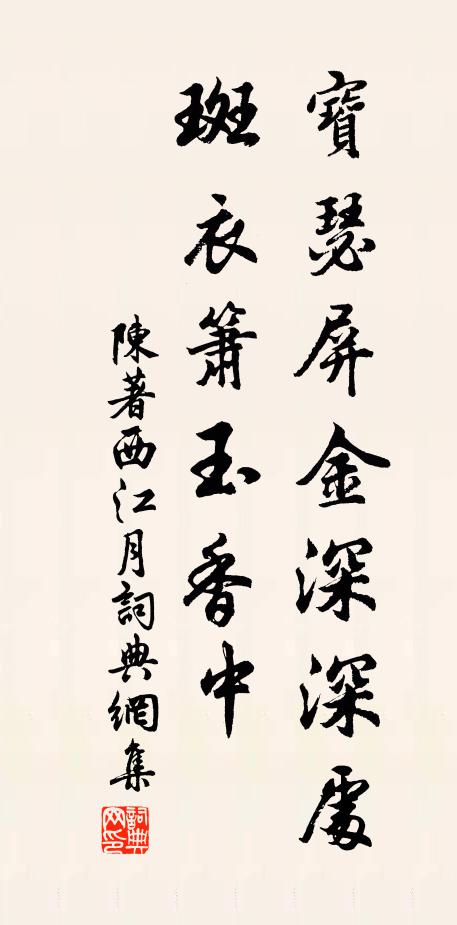 寶瑟屏金深深處
斑衣簫玉香中
陳著西江月詞典網集
詞典网印